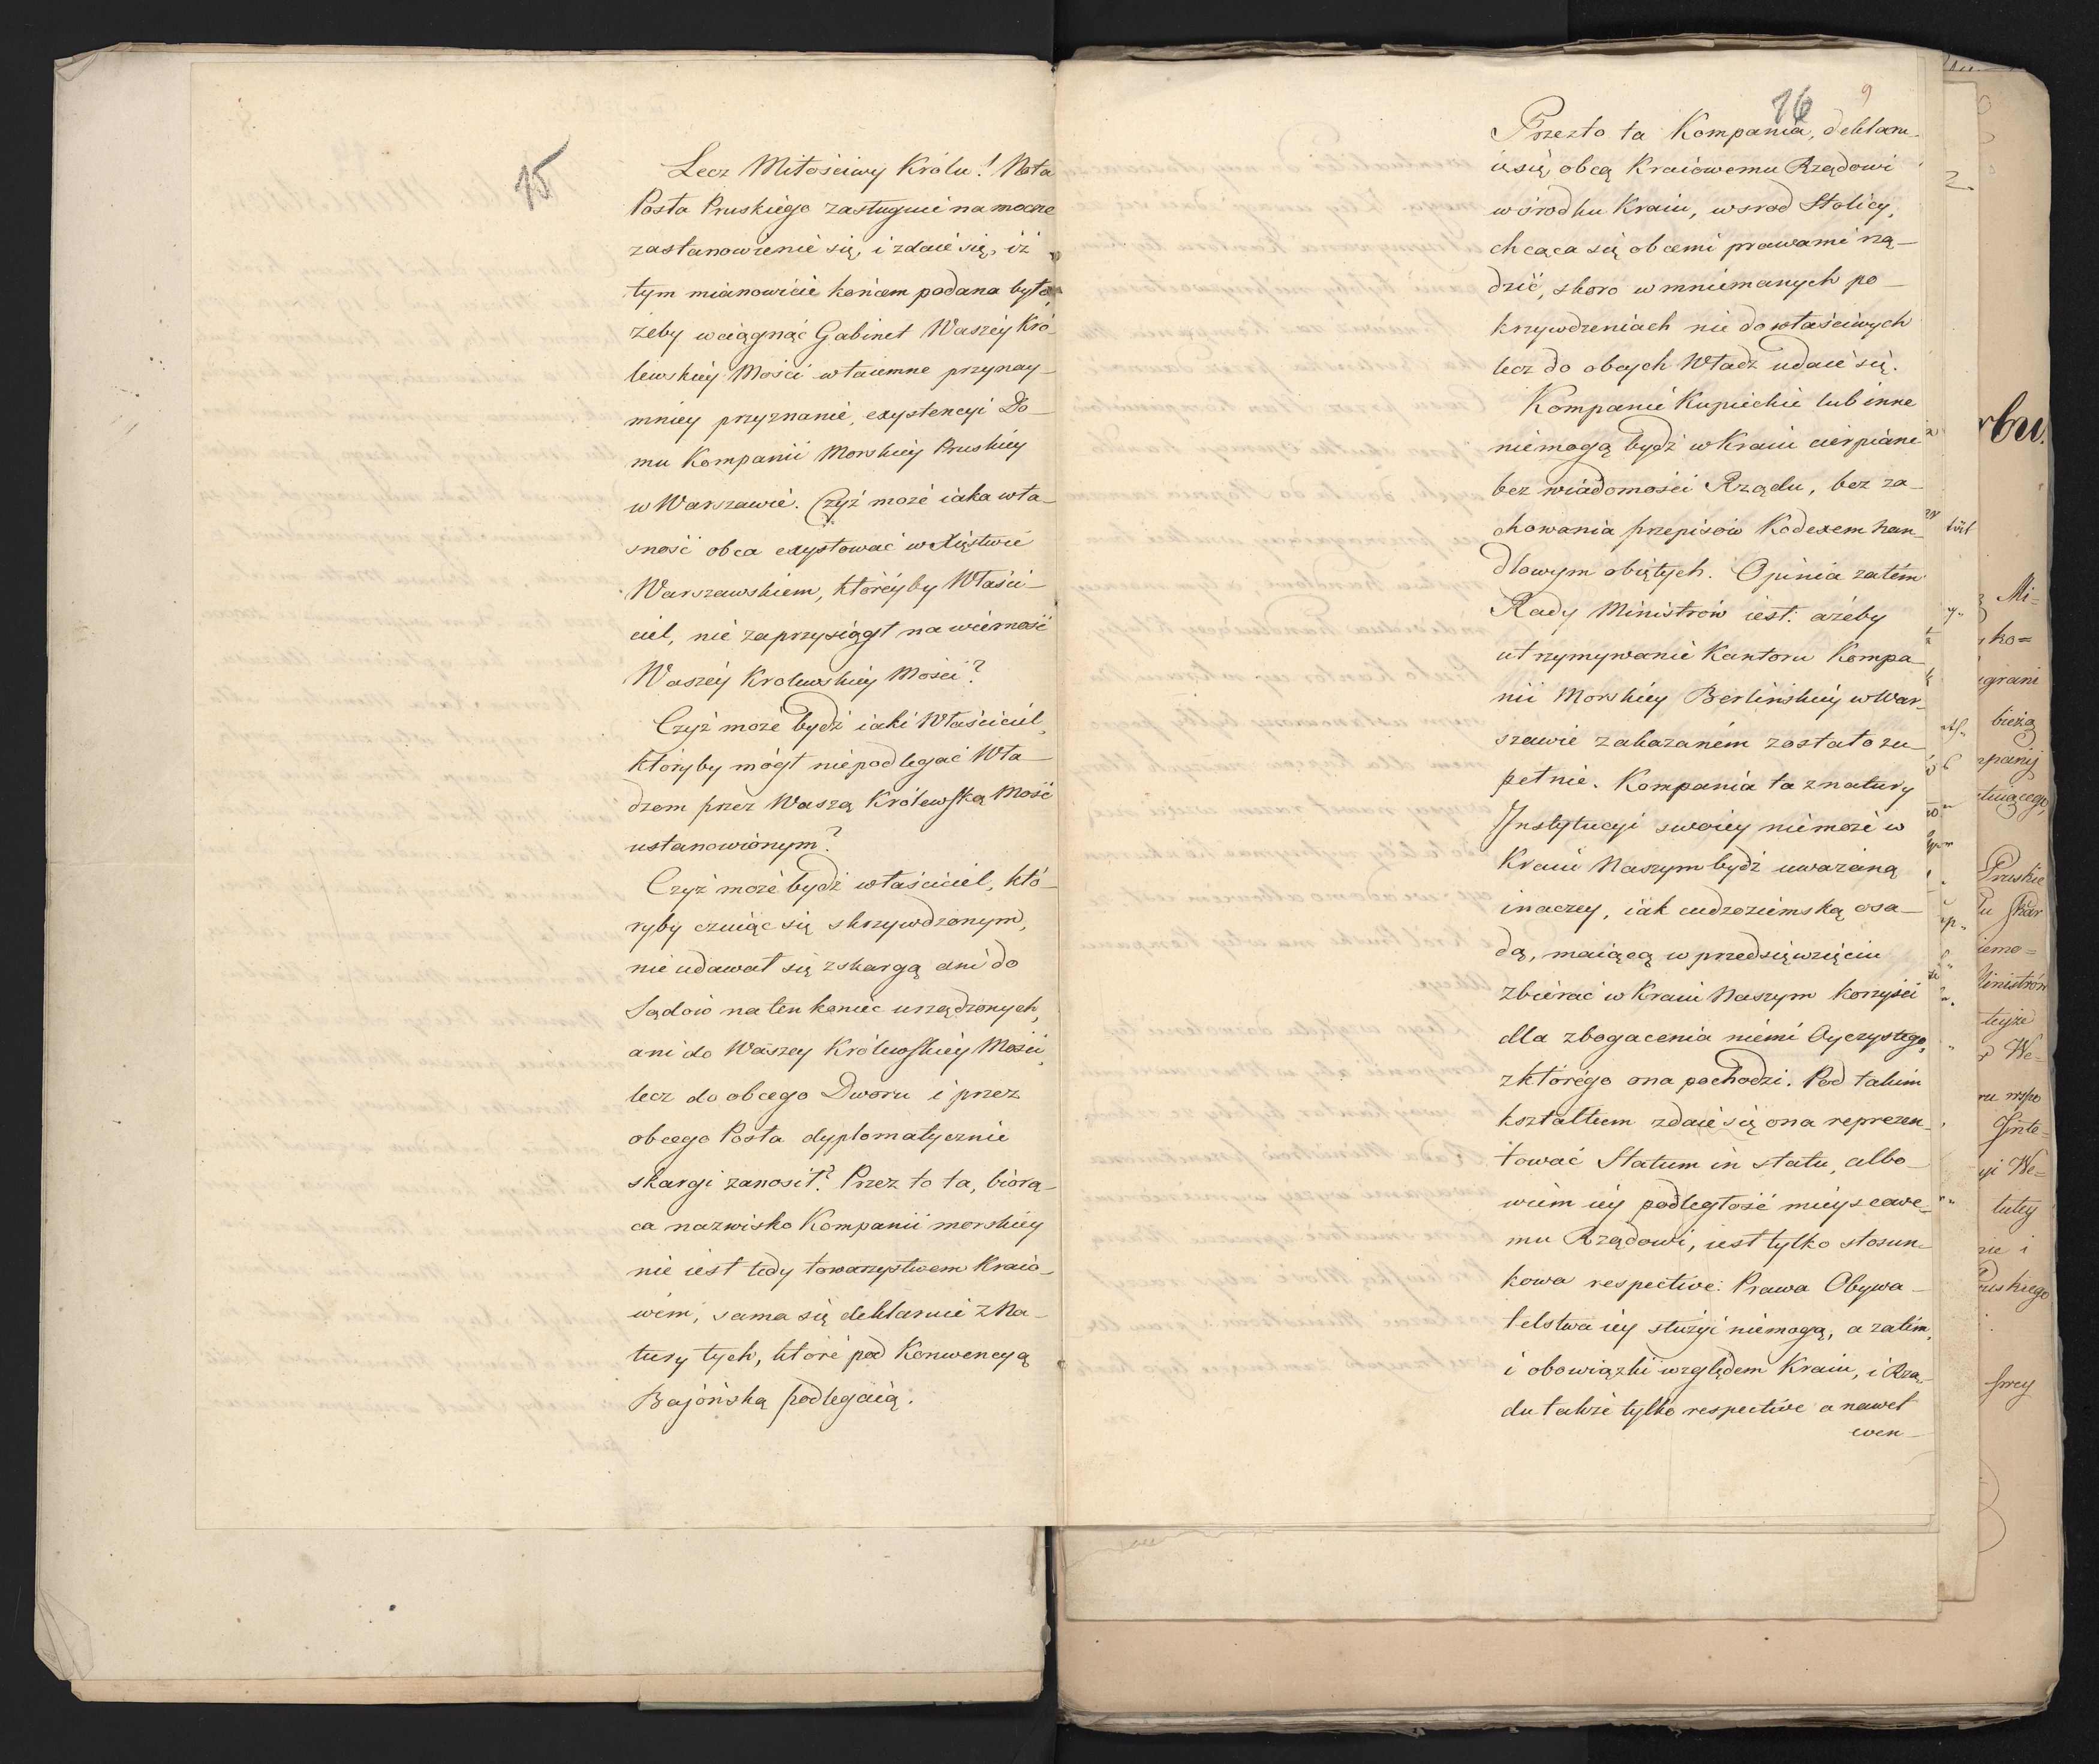 15
Lecz Miłościwy Królu! Nota
Posła Pruskiego zasługuie na mocne
zastanowienie się, i zdaie się, iż
tym mianowicie końcem podana była
żeby wciągnąć Gabinet Waszey Kró-
lewskiey Mości w taiemne przynay-
mniey przyznanie, exystencyi Do-
mu Kompanii Morskiey Pruskiey
w Warszawie. Czyż może iaka wła-
sność obca exystować w Xięstwie
Warszawskiem, któreyby Właści-
ciel, nie zaprzysiągł na wierność
Waszey Krolewskiey Mości?
Czyż może bydź iaki Właściciel,
któryby mógł niepodlegać Wła-
dzom przez Waszą Królewską Mość
ustanowionym?
Czyż może bydź właściciel, któ-
ryby czuiąc się skrzywdzonym,
nie udawał się z skargą ani do
Sądów na ten koniec urządzonych,
ani do Waszey Królewskiey Mości,
lecz do obcego Dworu i przez
obcego Posła dyplomatycznie
skargi zanosił? Przez to ta, biorą-
ca nazwisko Kompanii morskiey
nie iest tedy towarzystwem Kraio-
wém, sama się deklaruie z Na-
tury tych, które pod Konwencyą
Bajońską podlegaią.
16 9
Przezto ta Kompania, deklaru-
iąc się obcą Kraiowemu Rządowi
w środku Kraiu, wsrod Stolicy,
chcąca się obcemi prawami rzą-
dzić, skoro w mniemanych po-
krzywdzeniach nie do właściwych
lecz do obcych Władz udaie się.
Kompanie Kupieckie lub inne
niemogą bydź w Kraiu cierpiane
bez wiadomości Rządu, bez za-
chowania przepisów Kodexem han-
dlowym obiętych. Opinia zatém
Rady Ministrów iest: ażeby
utrzymywanie Kantoru Kompa-
nii Morskiey Berlińskiey w War-
szawie zakazaném zostało zu-
pełnie. Kompania ta z natury
Instytucyi swoiey niemoże w
Kraiu Naszym bydź uważaną
inaczey, iak cudzoziemską osa-
dą, maiącą w przedsięwzięciu
zbierać w Kraiu Naszym korzyści
dla zbogacenia niemi Oyczystego,
z którégo ona pochodzi. Pod takim
kształtem zdaie się ona reprezen-
tować Statum in statu, albo-
wiem iey podległość mieyscowe-
mu Rządowi, iest tylko stosun-
kowa respective: Prawa Obywa-
telstwa iey służyć niemogą, a zatém,
i obowiązki względem Kraiu, i Rzą-
du także tylko respective a nawet
ewen-